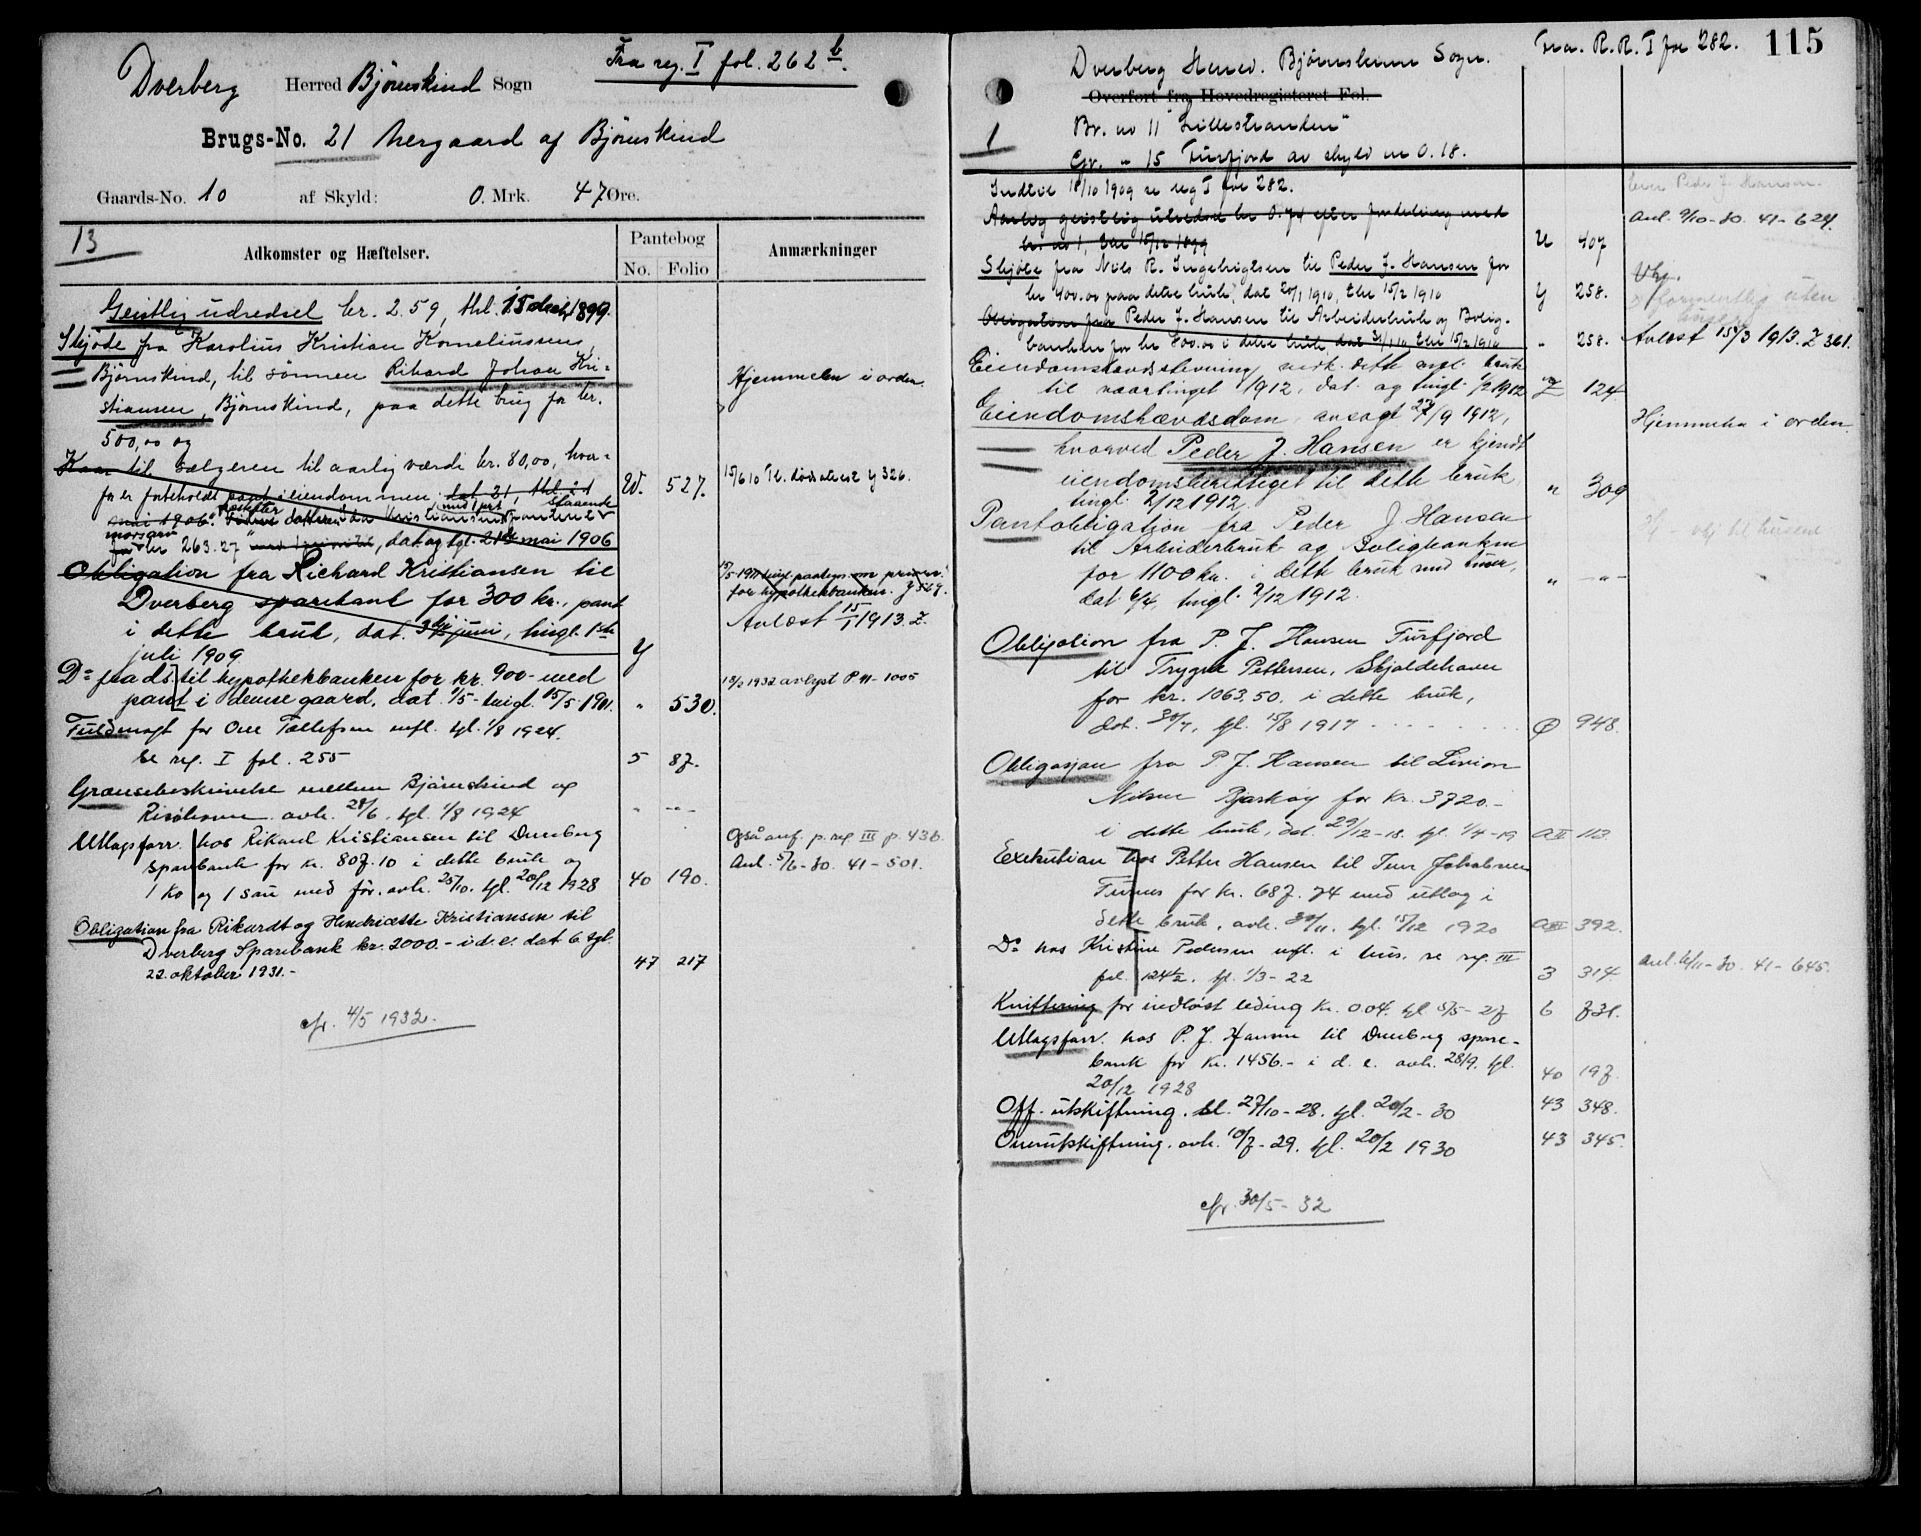 Fra reg. I fol. 262 b.
Dverberg Herred Bjørnskind Sogn
Brugs-No. 21 Nergaard af Bjørnskind
Gaards-No. 10 af Skyld: 0. Mrk. 47 Øre.
13
Adkomster og Hæftelser. Pantebog No. Folio Anmærkninger
Geistlig udredsel kr. 2.59, thl. 15 decbr 1899.
Skjøde fra Karolius Kristian Korneliussens,
Bjørnskind, til sønnen Rikard Johan Kri-
stiansen, Bjørnskind, paa dette brug for kr. Hjemmelen i orden
500,00 og
Kaar til sælgeren til aarlig værdi kr. 80,00, hvor-
for er forbeholdt pant i eiendommen. dat. 21, thl. 21 W. 527. 15/6 10 Tl. dødsattest Y 326.
mai 1906. datteren Ida Kristiansens
morsarv
for kr 263.27, dat og tgl. 21de mai 1906
Obligation fra Richard Kristiansen til
Dverberg sparebank for 300 kr., pant
i dette bruk, dat. 3die juni, tingl. 1ste Avlæst 15/1 1913. Z.
juli 1909 Y
Do fra ds. til hypothekbanken for kr. 900 - med 18/3 1932 avlyst P 41 - 1005
pant i denne gaard, dat. 1/5 - tingl. 15/5 1911. " 530.
Fuldmagt for Ole Tollefsen mfl. tgl. 1/8 1924.
Se reg. I fol. 255 5 87.
Grænsebeskrivelse mellem Bjørnskind og
Risøhavn. avh. 28/6. tgl. 1/8 1924 " - " -
Utlagsforr. hos Rikard Kristiansen til Dverberg Også anf. p. reg III p. 436.
sparebank for kr. 807.10 i dette bruk og Anl. 5/6 - 30. 41 - 501.
1 ko og 1 sau med fôr. avh. 25/10. tgl. 20/12 1928 40 190.
Obligation fra Rikardt og Hendriette Kristiansen til
Dverberg Sparebank kr. 2000.- i d. e. dat 6. tgl.
22. oktober 1931.- 47 217
cfr. 4/5 1932.
Fra. R.R. I fol 282. 115
Dverberg Herred. Bjørnskinn Sogn.
Overført fra Hovedregisteret Fol.
1 Br. no 11 "Lillestranden"
Gr. " 15 Furfjord av skyld m 0.18.
Indtil 18/10 1909 se reg I fol 282. Eier Peder J. Hansen.
Aarlig geistlig utredsel kr 0.74 efter fordeling med Anl. 9/10 - 30. 41 - 624.
br. no 1, thl 15/12 1899 U 407
Skjøte fra Nils R. Ingebrigtsen til Peder J. Hansen for
kr 400.00 paa dette bruk, dat 20/1 1910, thl 15/2 1910 Y 258.
Obligation fra Peder J. Hansen til Arbeiderbruk og Bolig-
banken for kr 800.00 i dette bruk, dat 31/1 10 thl 15/2 1910 " 258. Avlæst 15/3 1913. Z 361.
Eiendomshævdstevning vedk. dette mfl. bruk
til vaartinget 1912, dat. og tingl. 1/2 1912 Z 124
Eiendomshævdsdom, avsagt 27/9 1912, Hjemmelen i orden.
hvorved Peder J. Hansen er kjendt
eiendomsberettiget til dette bruk,
tingl. 2/12 1912. " 309
Pantobligation fra Peder J Hansen
til Arbeiderbruk- og Boligbanken
for 1100 kr. i dette bruk med huser,
dat 6/4, tingl. 2/12 1912. " - " -
Obligation fra P. J. Hansen Furfjord
til Trygve Pettersen, Skjoldehavn
for kr. 1063,50. i dette bruk,
dat. 30/7, tgl. 15/8 1917 Ø 948.
Obligasjon fra P. J. Hansen til Livion
Nilsen Bjarkøy for kr. 3720.-
i dette bruk, dat. 29/12-18. tgl. 1/4-19 AII 113
Exekution hos Petter Hansen til Jens Johansen
Furnes for kr. 687.74 med utlag i
dette bruk, avh. 30/11. tgl. 15/12 1920 AIII 392.
Do hos Kristine Pedersen mfl. i hus. se reg. III
fol. 124½. tgl. 1/3-22 3 314. Anl. 6/11-30. 41-645.
Kvittering for indløst leding kr. 0.04. tgl 5/5-27 6 731.
Utlagsforr. hos P. J. Hansen til Dverberg spare-
bank for kr. 1456.- i d. e. avh. 28/9. tgl.
20/12 1928 40 197.
Off. utskiftning. bl. 27/10-28. tgl. 20/2-30 43 348.
Overutskiftning. avh. 10/7-29. tgl. 20/2 1930 43 345.
cfr. 30/5-32